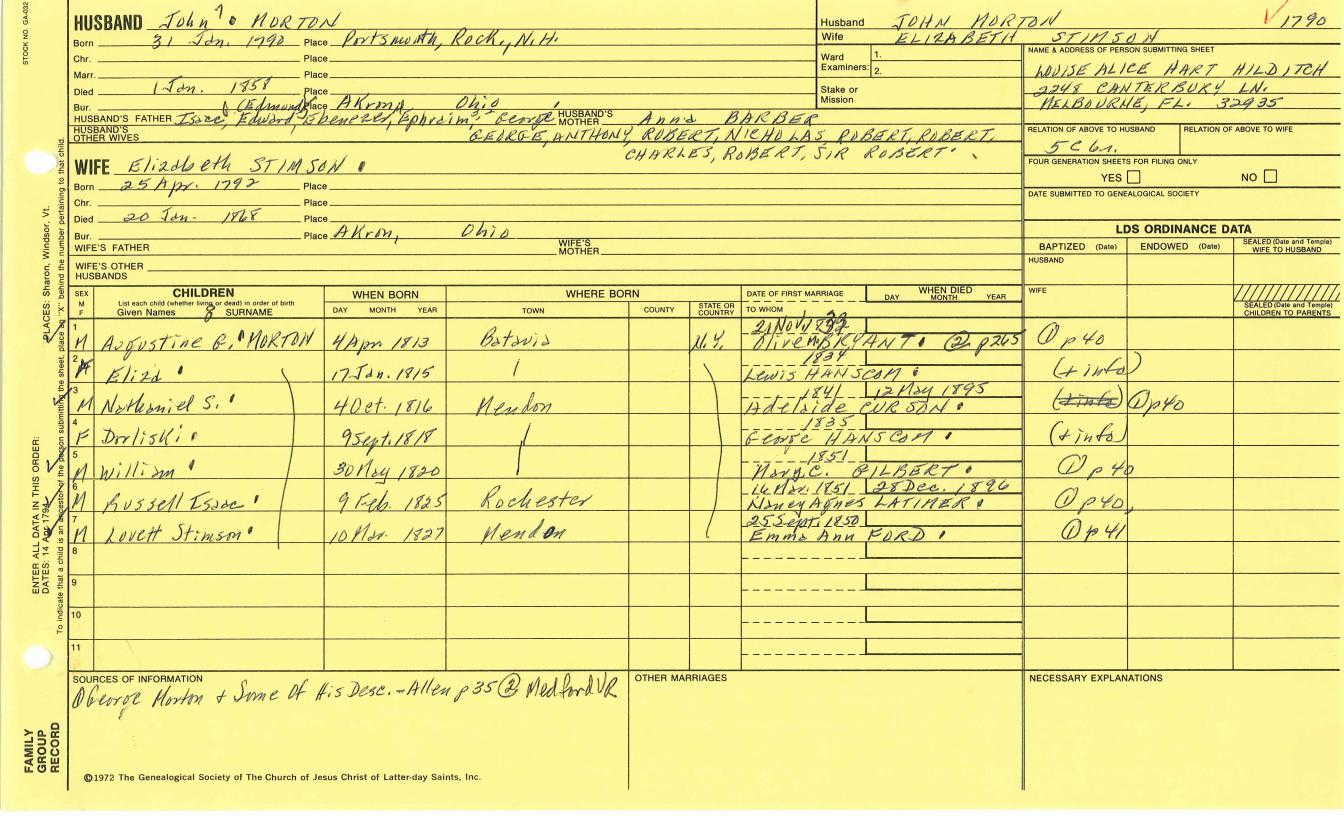 STOCK NO. GA-032
HUSBAND John 7 MORTON
Born 31 Jan. 1790 Place Portsmouth, Rock., N.H.
Chr. Place
Marr. Place
Died 1 Jan. 1858 Place
Bur. (Edmund) Place Akron, Ohio
HUSBAND'S FATHER Isaac, Edward, Ebenezer, Ephraim, George HUSBAND'S MOTHER Anna BARBER
HUSBAND'S OTHER WIVES GEORGE, ANTHONY, ROBERT, NICHOLAS, ROBERT, ROBERT,
CHARLES, ROBERT, SIR ROBERT
WIFE Elizabeth STIMSON
Born 25 Apr. 1792 Place
Chr. Place
Died 20 Jan. 1868 Place
Bur. Place Akron, Ohio
WIFE'S FATHER WIFE'S MOTHER
WIFE'S OTHER HUSBANDS
Husband JOHN MORTON 1790
Wife ELIZABETH STIMSON
Ward Examiners: 1.
2.
Stake or Mission
NAME & ADDRESS OF PERSON SUBMITTING SHEET
LOUISE ALICE HART HILDITCH
2248 CANTERBURY LN.
MELBOURNE, FL. 32935
RELATION OF ABOVE TO HUSBAND RELATION OF ABOVE TO WIFE
5C6r.
FOUR GENERATION SHEETS FOR FILING ONLY
YES NO
DATE SUBMITTED TO GENEALOGICAL SOCIETY
LDS ORDINANCE DATA
BAPTIZED (Date) ENDOWED (Date) SEALED (Date and Temple) WIFE TO HUSBAND
HUSBAND
WIFE
SEALED (Date and Temple) CHILDREN TO PARENTS
SEX M F CHILDREN WHEN BORN WHERE BORN DATE OF FIRST MARRIAGE WHEN DIED
List each child (whether living or dead) in order of birth
Given Names 8 SURNAME DAY MONTH YEAR TOWN COUNTY STATE OR COUNTRY TO WHOM DAY MONTH YEAR
1 21 Nov.
M Augustine G. MORTON 4 Apr. 1813 Batavia N.Y. Olive M. BRYANT ② p265 ① p40
2 1834
Eliza 17 Jan. 1815 Lewis HANSCOM (+ info)
3 1841 12 May 1895
M Nathaniel S. 4 Oct. 1816 Mendon Adelaide CURSON (+info) ① p40
4 1835
F Dorliski 9 Sept. 1818 George HANSCOM (+ info)
5 1851
M William 30 May 1820 Mary C. GILBERT ① p40
6 16 Mar. 1851 28 Dec. 1896
M Russell Isaac 9 Feb. 1825 Rochester Nancy Agnes LATIMER ① p40,
7 25 Sept. 1850
M Lovett Stimson 10 Mar. 1827 Mendon Emma Ann FORD ① p41
8
9
10
11
SOURCES OF INFORMATION OTHER MARRIAGES NECESSARY EXPLANATIONS
① George Morton & Some Of His Desc. - Allen p 35 ② Medford VR
©1972 The Genealogical Society of The Church of Jesus Christ of Latter-day Saints, Inc.
FAMILY GROUP RECORD
ENTER ALL DATA IN THIS ORDER:
DATES: 14 Apr 1794 PLACES: Sharon, Windsor, Vt.
To indicate that a child is an ancestor of the person submitting the sheet, place an "X" behind the number pertaining to that child.